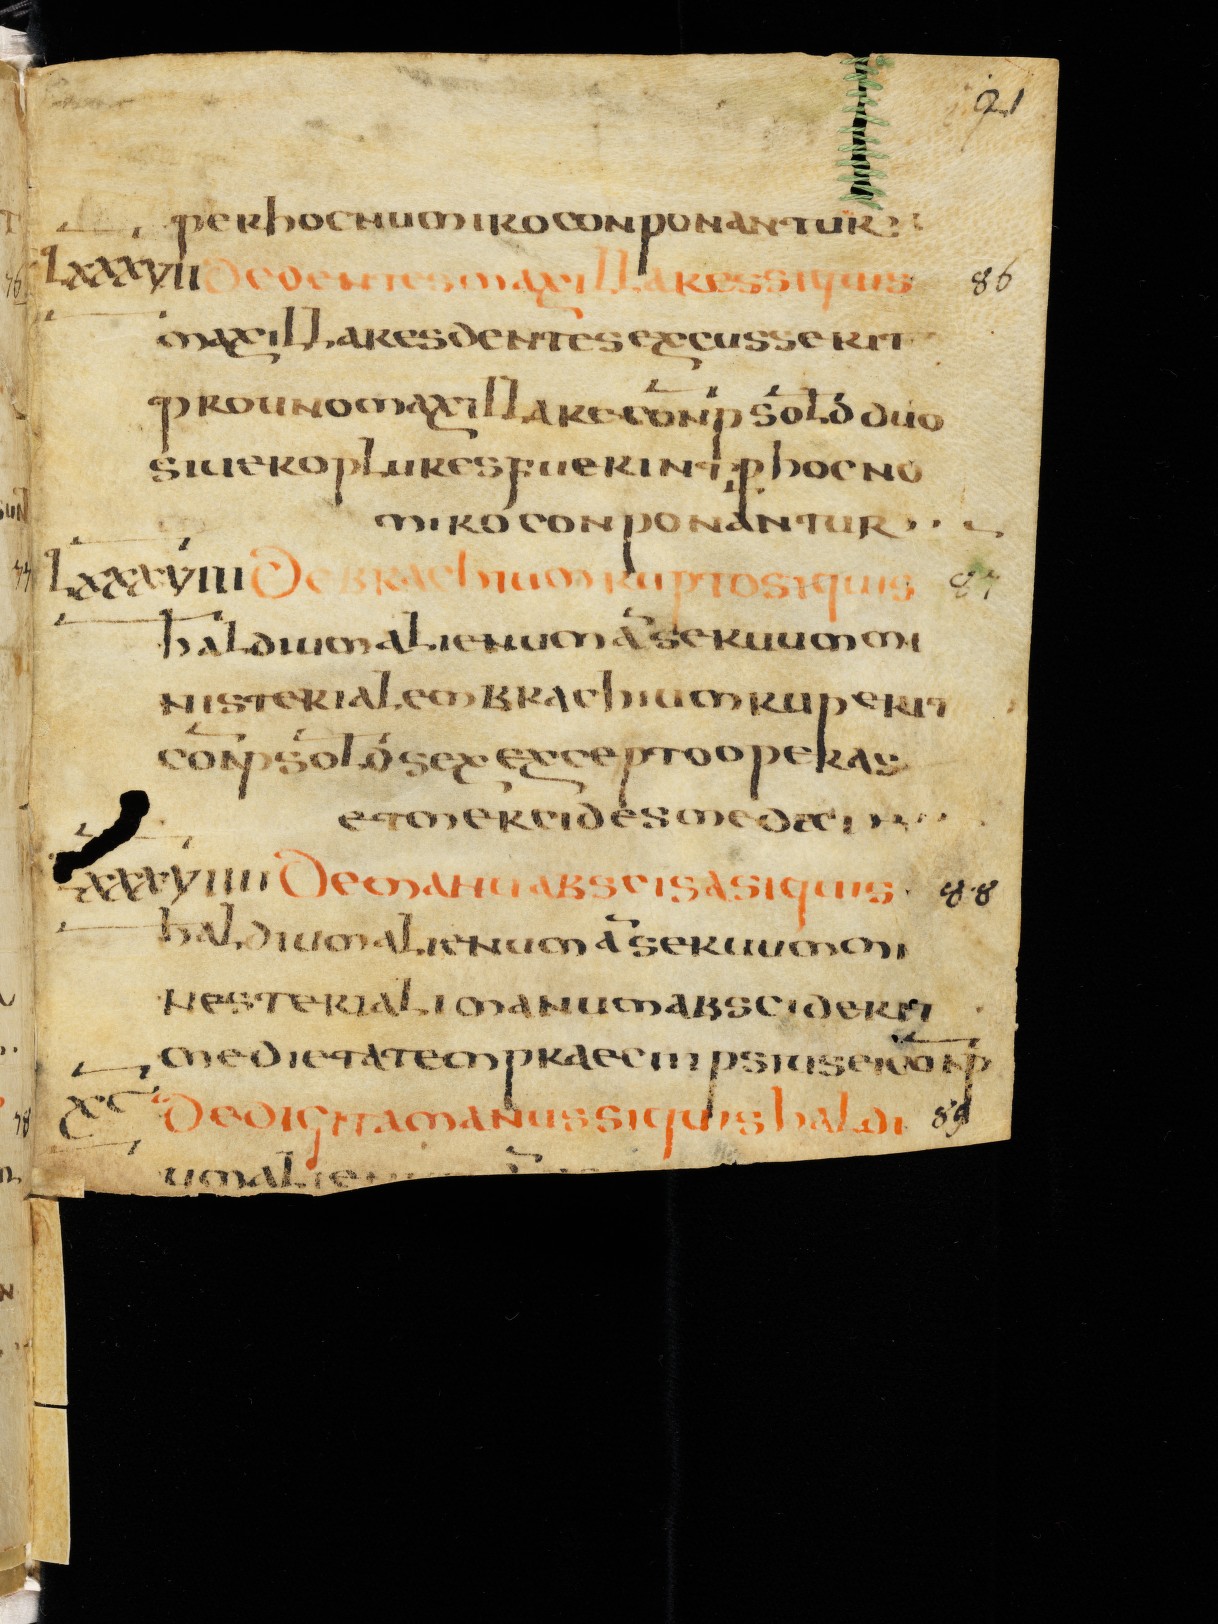 21
perhocnumiroconponantur
Lxxxvii dedentesmaxillaressiquis 86
maxillaresdentesexcusserit
prounomaxillareconp sold duo
siueropluresfuerint p hocno
miroconponantur
Lxxxviii debrachiumruptosiquis 87
haldiumalienum a seruummi
nisterialembrachiumruperit
conp sold sex exceptooperas
etmercidesmedici
xxxviiii demanuabscisasiquis 88
haldiumalienum a seruummi
nesterialimanumabsciderit
medietatempraecii ipsiuseiconp
xc dedigitamanussiquishaldi 89
umalie